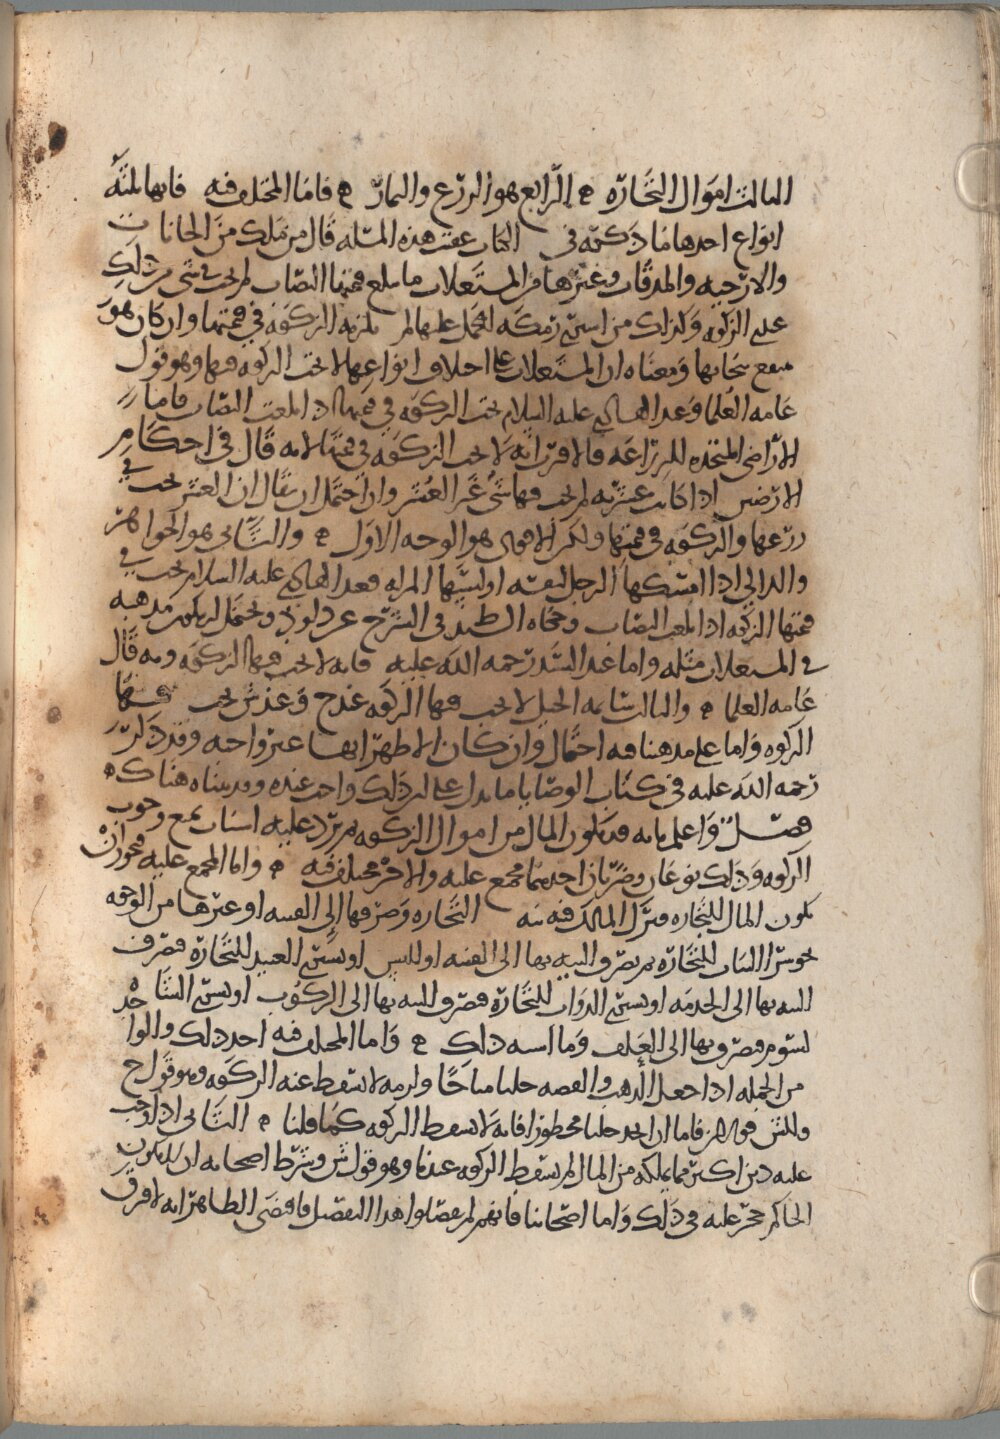 الثالث اموال التجارة ه الرابع هو الزرع والثمار ه فاما المختلف فيه فانها ثلثة
انواع احدها ما ذكرته في الكتاب عقيب هذه المسئلة قال من ملك من الحانات
والارحية والمدقات وغيرها من المستغلات ما يبلغ قيمتها النصاب لم تجب في شي من ذلك
عليه الزكوة وكذلك من اشترى رمكة ليحمل عليها لم يلزمه الزكوة في قيمتها وان كان هو
يبيع نتاجها ومعناه ان المستغلات على اختلاف انواعها لا تجب الزكوة فيها وهو قول
عامة العلما وعند الهادي عليه السلام تجب الزكوة في قيمتها اذا بلغت النصاب فاما
الاراضي المتخذة للزراعة فالاقرب انه لا تجب الزكوة في قيمتها لانه قال في احكام
الارضين اذا كانت عشرية لم تجب فيها شي غير العشر وان احتمل ان يقال ان العشر تجب في
زرعها والزكوة في قيمتها ولكن الاقوى هو الوجه الاول ه والثاني هو الجواهر
واللالي اذا امسكها الرجل لنفسه او لبستها المراة فعند الهادي عليه السلام تجب في
قيمتها الزكوة اذا بلغت النصاب وحكاه السيد في الشرح عن داود ويحتمل ان يكون مذهبه
في المستغلات مثله واما عند السيد رحمه الله عليه فانه لا تجب فيها الزكوة وبه قال
عامة العلما ه والثالث سائمة الخيل لا تجب فيها الزكوة عند ح وعند ش تجب فيها
الزكوة واما على مذهبنا فيه احتمال وان كان الاظهر انها غير واجبة وقد ذكر
رحمه الله عليه في كتاب الوصايا ما يدل على ان ذلك واجب عنده وقد بيناه هناك ه
فصل واعلم بانه قد يكون المال من اموال الزكوة ثم يرد عليه اسباب تمنع وجوب
الزكوة وذلك نوعان وضربان احدهما مجمع عليه والاخر مختلف فيه ه واما المجمع عليه فهو ان
يكون المال للتجارة فترك المالك فيه نية التجارة وصرفها الى القنية او غيرها من الوجوه
نحو شرا الثياب للتجارة ثم يصرف النية بها الى القنية او للبس او يشتري العبيد للتجارة فصرف
النية بها الى الخدمة او يشتري الدواب للتجارة فصرف النية بها الى الركوب او يشتري الشا
لسوم فصرف بها الى العلف وما اشبه ذلك ه واما المختلف فيه احد ذلك قالوا
من الجملة اذا جعل الذهب والفضة حليا مباحا ولزمه لا تسقط عنه الزكوة وهو قول ح
وللش قولان فاما ان اتخذ حليا محظورا فانه لا تسقط الزكوة كما قلنا ه الثاني اذا وجب
عليه دين اكثر مما يملكه من المال لم تسقط الزكوة عندنا وهو قول ش وشرط اصحابه ان لا يكون
الحاكم حجر عليه في ذلك واما اصحابنا فانهم لم يفصلوا هذا التفصيل فاقتضى الظاهر انه لا فرق